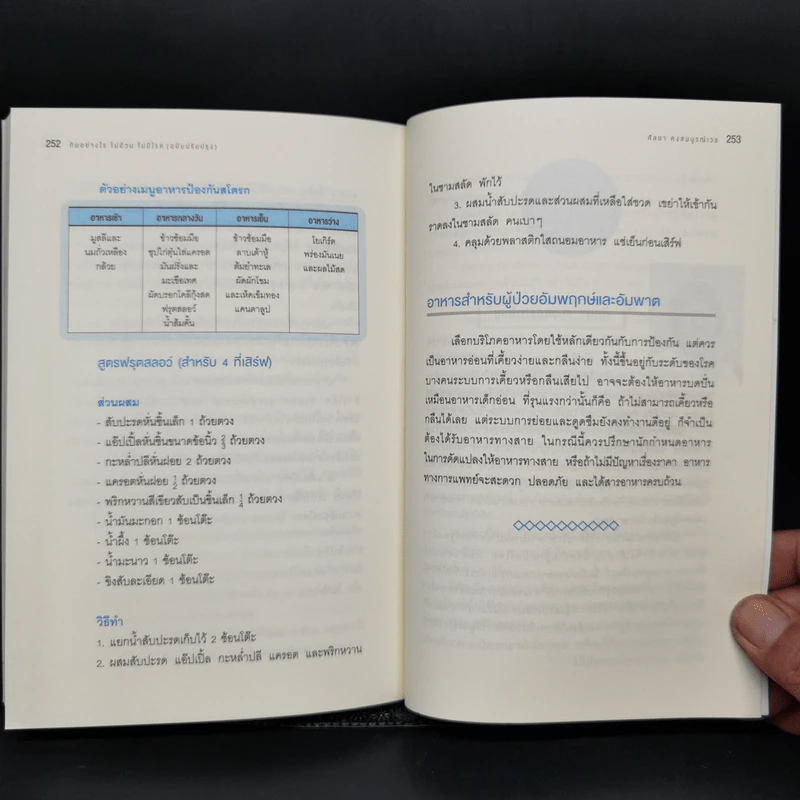 252 กินอย่างไร ไม่อ้วน ไม่มีโรค (ฉบับปรับปรุง)
ตัวอย่างเมนูอาหารป้องกันสโตรก
อาหารเช้า อาหารกลางวัน อาหารเย็น อาหารว่าง
มูสลีและ ข้าวซ้อมมือ ข้าวซ้อมมือ โยเกิร์ต
นมถั่วเหลือง ซุปไก่ตุ๋นใส่แครอต ลาบเต้าหู้ พร่องมันเนย
กล้วย มันฝรั่งและ ต้มยำทะเล และผลไม้สด
มะเขือเทศ ผัดผักโขม
ผัดบรอกโคลีกุ้งสด และเห็ดเข็มทอง
ฟรุตสลอว์ แคนตาลูป
น้ำส้มคั้น
สูตรฟรุตสลอว์ (สำหรับ 4 ที่เสิร์ฟ)
ส่วนผสม
- สับปะรดหั่นชิ้นเล็ก 1 ถ้วยตวง
- แอ๊ปเปิ้ลหั่นชิ้นขนาดข้อนิ้ว ถ้วยตวง
- กะหล่ำปลีหั่นฝอย 2 ถ้วยตวง
- แครอตหั่นฝอย 1/2 ถ้วยตวง
- พริกหวานสีเขียวสับเป็นชิ้นเล็ก 1/4 ถ้วยตวง
- น้ำมันมะกอก 1 ช้อนโต๊ะ
- น้ำผึ้ง 1 ช้อนโต๊ะ
- น้ำมะนาว 1 ช้อนโต๊ะ
- ขิงสับละเอียด 1 ช้อนโต๊ะ
วิธีทำ
1. แยกน้ำสับปะรดเก็บไว้ 2 ช้อนโต๊ะ
2. ผสมสับปะรด แอ๊ปเปิ้ล กะหล่ำปลี แครอต และพริกหวาน
ศัลยา คงสมบูรณ์เวช 253
ในชามสลัด พักไว้
3. ผสมน้ำสับปะรดและส่วนผสมที่เหลือใส่ขวด เขย่าให้เข้ากัน
ราดลงในชามสลัด คนเบาๆ
4. คลุมด้วยพลาสติกใสถนอมอาหาร แช่เย็นก่อนเสิร์ฟ
อาหารสำหรับผู้ป่วยอัมพฤกษ์และอัมพาต
เลือกบริโภคอาหารโดยใช้หลักเดียวกันกับการป้องกัน แต่ควร
เป็นอาหารอ่อนที่เคี้ยวง่ายและกลืนง่าย ทั้งนี้ขึ้นอยู่กับระดับของโรค
บางคนระบบการเคี้ยวหรือกลืนเสียไป อาจจะต้องให้อาหารบดปั่น
เหมือนอาหารเด็กอ่อน ที่รุนแรงกว่านั้นก็คือ ถ้าไม่สามารถเคี้ยวหรือ
กลืนได้เลย แต่ระบบการย่อยและดูดซึมยังคงทำงานดีอยู่ ก็จำเป็น
ต้องได้รับอาหารทางสาย ในกรณีนี้ควรปรึกษานักกำหนดอาหาร
ในการดัดแปลงให้อาหารทางสาย หรือถ้าไม่มีปัญหาเรื่องราคา อาหาร
ทางการแพทย์จะสะดวก ปลอดภัย และได้สารอาหารครบถ้วน